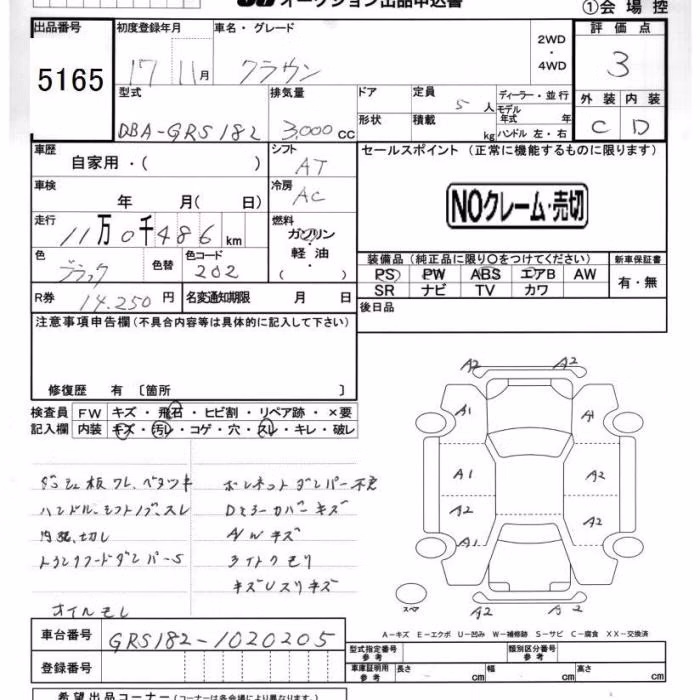 オークション出品申込書
①会場控
出品番号 5165
初度登録年月 17 11月
車名・グレード クラウン
2WD・4WD
評価点 3
型式 DBA-GRS182
排気量 3,000cc
ドア 形状
定員 5人 積載 kg
ディーラー・並行
モデル年式 年
ハンドル 左・右
外装 C
内装 D
車歴 自家用・( )
シフト AT
セールスポイント (正常に機能するものに限ります)
NOクレーム・売切
車検 年 月( 日)
冷房 AC
走行 11万0千486km
燃料 ガソリン・軽油・( )
色 ブラック
色替
色コード 202
装備品(純正品に限り〇をつけてください)
新車保証書 有・無
PS PW ABS エアB AW
SR ナビ TV カワ
R券 14.250円
名変通知期限 月 日
後日品
注意事項申告欄(不具合内容等は具体的に記入して下さい)
修復歴 有〔箇所 〕
検査員記入欄
FW キズ・飛石・ヒビ割・リペア跡・×要
内装 キズ・汚レ・コゲ・穴・スレ・キレ・破レ
ダッシュ板ワレ、ベタツキ
ハンドル、シフトノブ、スレ
内張、切レ
トランクフードダンパーS
オイルモレ
ボンネットダンパー不良
Dミラーカバーキズ
A/Wキズ
ライトクモリ
キズUスリキズ
A2 A2
A1 A1
A1 A2
A2 A2
A1
A2 A2
スペア
A-キズ E-エクボ U-凹み W-補修跡 S-サビ C-腐食 XX-交換済
車台番号 GRS182-1020205
登録番号
型式指定番号 参考
類別区分番号 参考
車庫証明用 参考 長さ cm 幅 cm 高さ cm
希望出品コーナー(コーナーは各会場により異なります)